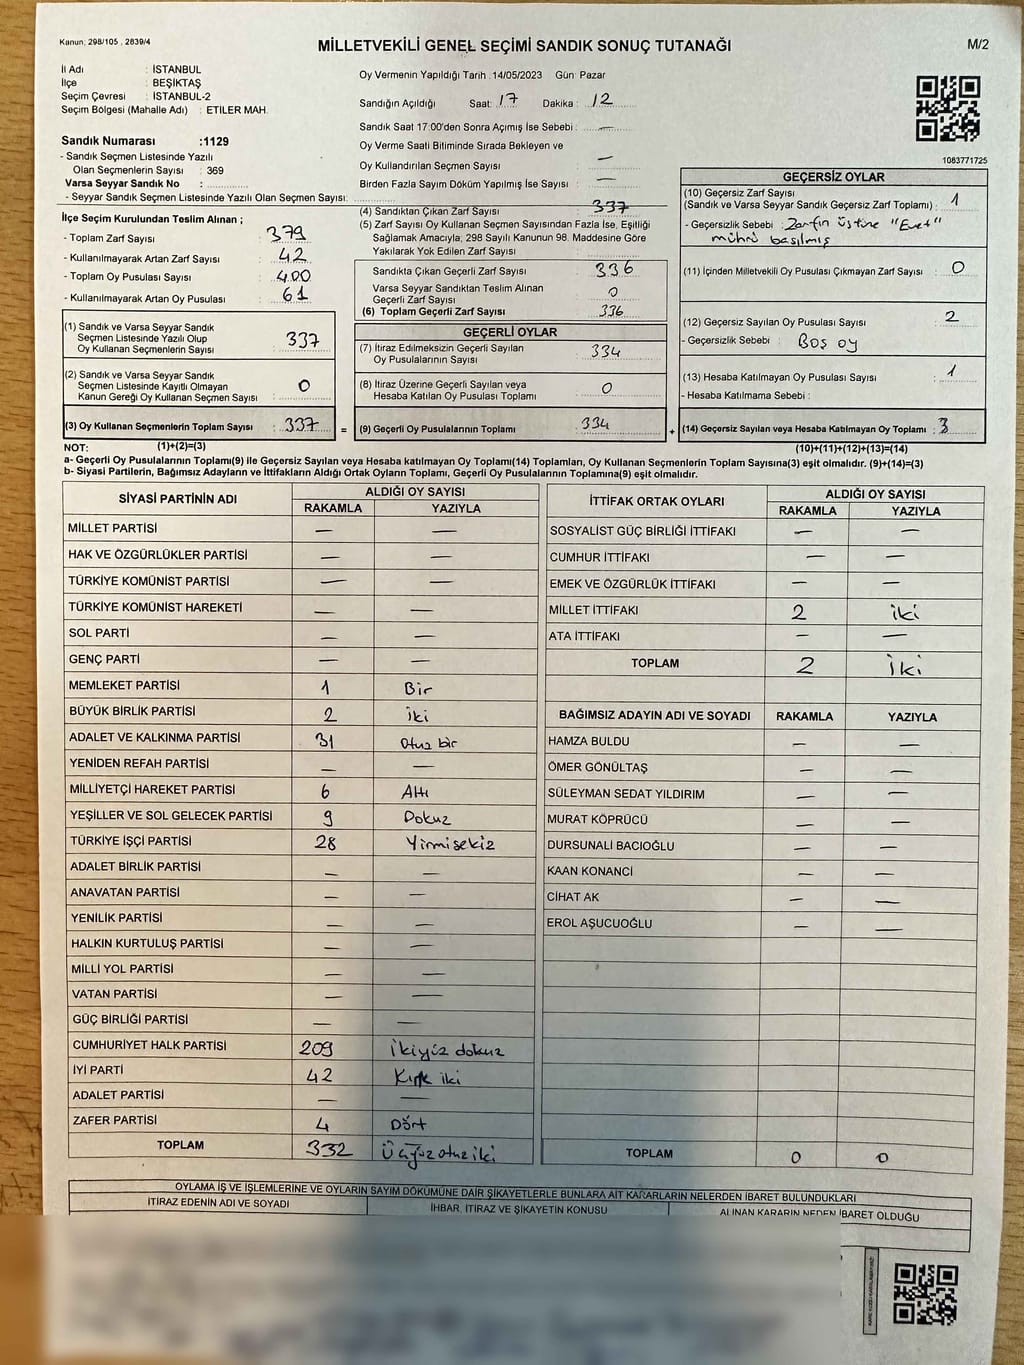 Kanun; 298/105 , 2839/4
MİLLETVEKİLİ GENEL SEÇİMİ SANDIK SONUÇ TUTANAĞI
M/2
İl Adı : İSTANBUL
İlçe : BEŞİKTAŞ
Seçim Çevresi : İSTANBUL-2
Seçim Bölgesi (Mahalle Adı) : ETİLER MAH.
Oy Vermenin Yapıldığı Tarih :14/05/2023 Gün: Pazar
Sandığın Açıldığı Saat: 17 Dakika : 12
Sandık Saat 17:00'den Sonra Açımış İse Sebebi : —
Oy Verme Saati Bitiminde Sırada Bekleyen ve
Oy Kullandırılan Seçmen Sayısı —
Birden Fazla Sayım Döküm Yapılmış İse Sayısı : —
1083771725
Sandık Numarası :1129
- Sandık Seçmen Listesinde Yazılı
Olan Seçmenlerin Sayısı : 369
Varsa Seyyar Sandık No :
- Seyyar Sandık Seçmen Listesinde Yazılı Olan Seçmen Sayısı:
İlçe Seçim Kurulundan Teslim Alınan ;
- Toplam Zarf Sayısı : 379
- Kullanılmayarak Artan Zarf Sayısı : 42
- Toplam Oy Pusulası Sayısı : 400
- Kullanılmayarak Artan Oy Pusulası : 61
(1) Sandık ve Varsa Seyyar Sandık
Seçmen Listesinde Yazılı Olup
Oy Kullanan Seçmenlerin Sayısı : 337
(2) Sandık ve Varsa Seyyar Sandık
Seçmen Listesinde Kayıtlı Olmayan
Kanun Gereği Oy Kullanan Seçmen Sayısı : 0
(3) Oy Kullanan Seçmenlerin Toplam Sayısı : 337 =
(4) Sandıktan Çıkan Zarf Sayısı : 337
(5) Zarf Sayısı Oy Kullanan Seçmen Sayısından Fazla İse, Eşitliği
Sağlamak Amacıyla, 298 Sayılı Kanunun 98. Maddesine Göre
Yakılarak Yok Edilen Zarf Sayısı :
Sandıkta Çıkan Geçerli Zarf Sayısı : 336
Varsa Seyyar Sandıktan Teslim Alınan
Geçerli Zarf Sayısı : 0
(6) Toplam Geçerli Zarf Sayısı : 336
GEÇERLİ OYLAR
(7) İtiraz Edilmeksizin Geçerli Sayılan
Oy Pusulalarının Sayısı : 334
(8) İtiraz Üzerine Geçerli Sayılan veya
Hesaba Katılan Oy Pusulaları Toplamı : 0
(9) Geçerli Oy Pusulalarının Toplamı : 334 +
GEÇERSİZ OYLAR
(10) Geçersiz Zarf Sayısı
(Sandık ve Varsa Seyyar Sandık Geçersiz Zarf Toplamı) : 1
- Geçersizlik Sebebi : Zarfın üstüne "Evet"
mührü basılmış
(11) İçinden Milletvekili Oy Pusulası Çıkmayan Zarf Sayısı : 0
(12) Geçersiz Sayılan Oy Pusulası Sayısı : 2
- Geçersizlik Sebebi : Boş oy
(13) Hesaba Katılmayan Oy Pusulası Sayısı : 1
- Hesaba Katılmama Sebebi :
(14) Geçersiz Sayılan veya Hesaba Katılmayan Oy Toplamı : 3
NOT: (1)+(2)=(3) (10)+(11)+(12)+(13)=(14)
a- Geçerli Oy Pusulalarının Toplamı(9) ile Geçersiz Sayılan veya Hesaba katılmayan Oy Toplamı(14) Toplamları, Oy Kullanan Seçmenlerin Toplam Sayısına(3) eşit olmalıdır. (9)+(14)=(3)
b- Siyasi Partilerin, Bağımsız Adayların ve İttifakların Aldığı Ortak Oyların Toplamı, Geçerli Oy Pusulalarının Toplamına(9) eşit olmalıdır.
SİYASİ PARTİNİN ADI ALDIĞI OY SAYISI
RAKAMLA YAZIYLA
MİLLET PARTİSİ — —
HAK VE ÖZGÜRLÜKLER PARTİSİ — —
TÜRKİYE KOMÜNİST PARTİSİ — —
TÜRKİYE KOMÜNİST HAREKETİ — —
SOL PARTİ — —
GENÇ PARTİ — —
MEMLEKET PARTİSİ 1 Bir
BÜYÜK BİRLİK PARTİSİ 2 iki
ADALET VE KALKINMA PARTİSİ 31 Otuz bir
YENİDEN REFAH PARTİSİ — —
MİLLİYETÇİ HAREKET PARTİSİ 6 Altı
YEŞİLLER VE SOL GELECEK PARTİSİ 9 Dokuz
TÜRKİYE İŞÇİ PARTİSİ 28 Yirmisekiz
ADALET BİRLİK PARTİSİ — —
ANAVATAN PARTİSİ — —
YENİLİK PARTİSİ — —
HALKIN KURTULUŞ PARTİSİ — —
MİLLİ YOL PARTİSİ — —
VATAN PARTİSİ — —
GÜÇ BİRLİĞİ PARTİSİ — —
CUMHURİYET HALK PARTİSİ 209 İkiyüz dokuz
İYİ PARTİ 42 Kırk iki
ADALET PARTİSİ — —
ZAFER PARTİSİ 4 Dört
TOPLAM 332 Üçyüz otuz iki
İTTİFAK ORTAK OYLARI ALDIĞI OY SAYISI
RAKAMLA YAZIYLA
SOSYALİST GÜÇ BİRLİĞİ İTTİFAKI — —
CUMHUR İTTİFAKI — —
EMEK VE ÖZGÜRLÜK İTTİFAKI — —
MİLLET İTTİFAKI 2 iki
ATA İTTİFAKI — —
TOPLAM 2 İki
BAĞIMSIZ ADAYIN ADI VE SOYADI RAKAMLA YAZIYLA
HAMZA BULDU — —
ÖMER GÖNÜLTAŞ — —
SÜLEYMAN SEDAT YILDIRIM — —
MURAT KÖPRÜCÜ — —
DURSUNALİ BACIOĞLU — —
KAAN KONANCİ — —
CİHAT AK — —
EROL AŞUCUOĞLU — —
TOPLAM 0 0
OYLAMA İŞ VE İŞLEMLERİNE VE OYLARIN SAYIM DÖKÜMÜNE DAİR ŞİKAYETLERLE BUNLARA AİT KARARLARIN NELERDEN İBARET BULUNDUKLARI
İTİRAZ EDENİN ADI VE SOYADI İHBAR, İTİRAZ VE ŞİKAYETİN KONUSU ALINAN KARARIN NEDEN İBARET OLDUĞU